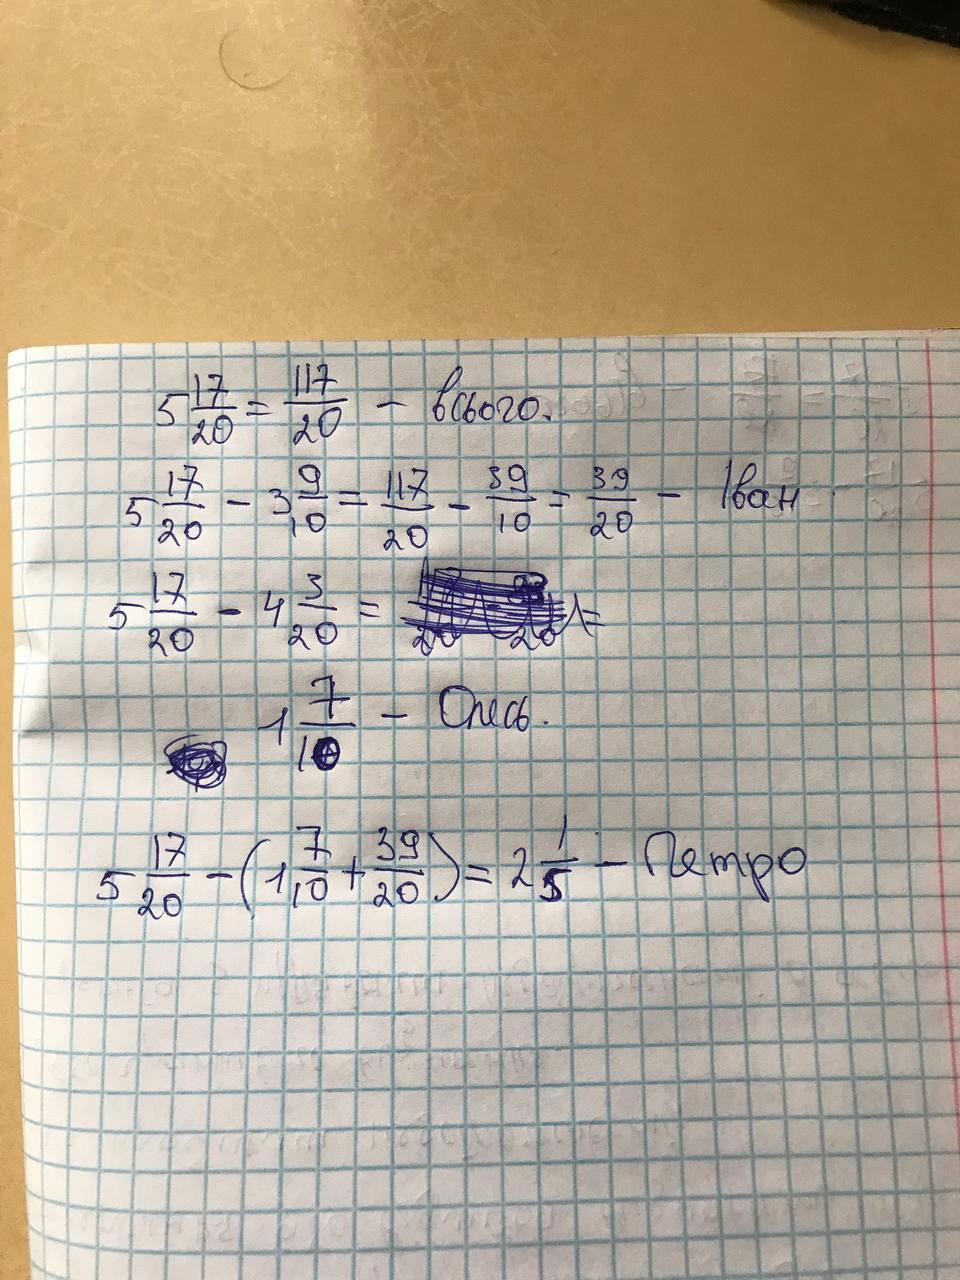 5 17/20 = 117/20 - всього.
5 17/20 - 3 9/10 = 117/20 - 39/10 = 39/20 - Іван
5 17/20 - 4 3/20 = =
1 7/10 - Олесь.
5 17/20 - (1 7/10 + 39/20) = 2 1/5 - Петро